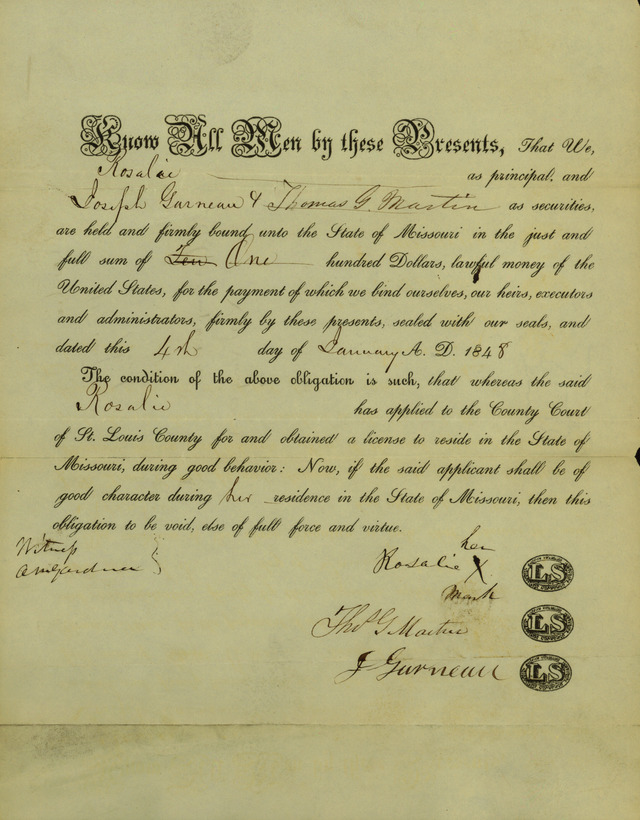 Know All Men by these Presents, That We,
Rosalie as principal, and
Joseph Garneau & Thomas G. Martin as securities,
are held and firmly bound unto the State of Missouri in the just and
full sum of Ten One hundred Dollars, lawful money of the
United States, for the payment of which we bind ourselves, our heirs, executors
and administrators, firmly by these presents, sealed with our seals, and
dated this 4th day of January A. D. 1848
The condition of the above obligation is such, that whereas the said
Rosalie has applied to the County Court
of St. Louis County for and obtained a license to reside in the State of
Missouri, during good behavior: Now, if the said applicant shall be of
good character during her residence in the State of Missouri, then this
obligation to be void, else of full force and virtue.
Witness
her
Rosalie X
mark
LS
Thos G Martin
LS
J Garneau
LS